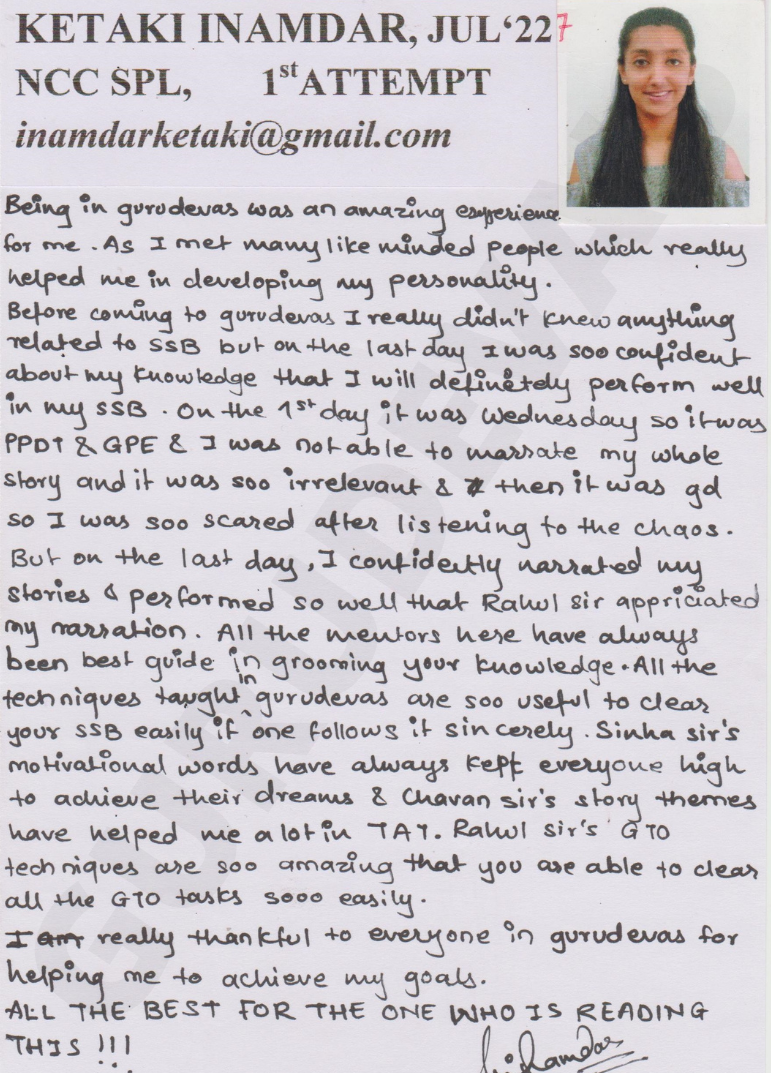 KETAKI INAMDAR, JUL‘22 7
NCC SPL, 1st ATTEMPT
inamdarketaki@gmail.com
Being in gurudevas was an amazing experience
for me. As I met many like minded people which really
helped me in developing my personality.
Before coming to gurudevas I really didn't knew anything
related to SSB but on the last day I was soo confident
about my knowledge that I will definetely perform well
in my SSB. On the 1st day it was Wednesday so it was
PPDT & GPE & I was not able to narrate my whole
story and it was soo irrelevant & then it was gd
so I was soo scared after listening to the chaos.
But on the last day, I confidently narrated my
stories & performed so well that Rahul sir appriciated
my narration. All the mentors here have always
been best guide in grooming your knowledge. All the
techniques taught in gurudevas are soo useful to clear
your SSB easily if one follows it sincerely. Sinha sir's
motivational words have always kept everyone high
to achieve their dreams & Chavan sir's story themes
have helped me a lot in TAT. Rahul sir's GTO
techniques are soo amazing that you are able to clear
all the GTO tasks sooo easily.
I am really thankful to everyone in gurudevas for
helping me to achieve my goals.
ALL THE BEST FOR THE ONE WHO IS READING
THIS !!!
GURUDEVAS